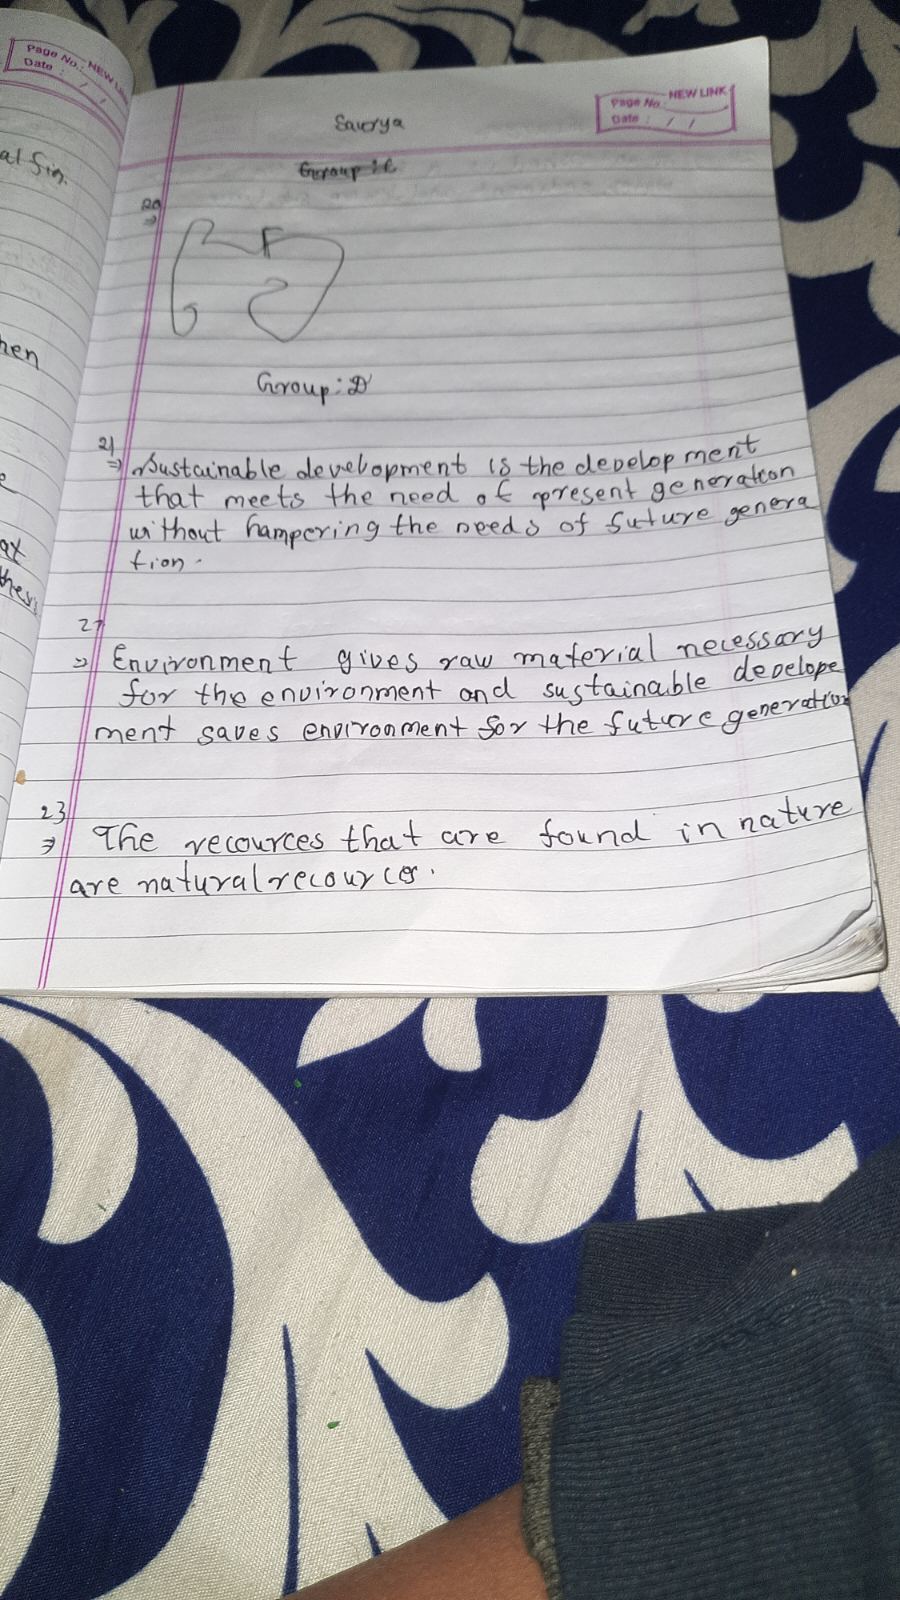 Page No.: NEW LINK
Date : / /
al fin.
hen
e
at
thes
NEW LINK
Page No.
Date : / /
Saurya
Group: C
20
⇒
Group: D
21
⇒ Sustainable development is the development
that meets the need of present generation
without hampering the needs of future genera
tion.
22
⇒ Environment gives raw material necessary
for the environment and sustainable develope
ment saves environment for the future generation
23
⇒ The recources that are found in nature
are natural recources.